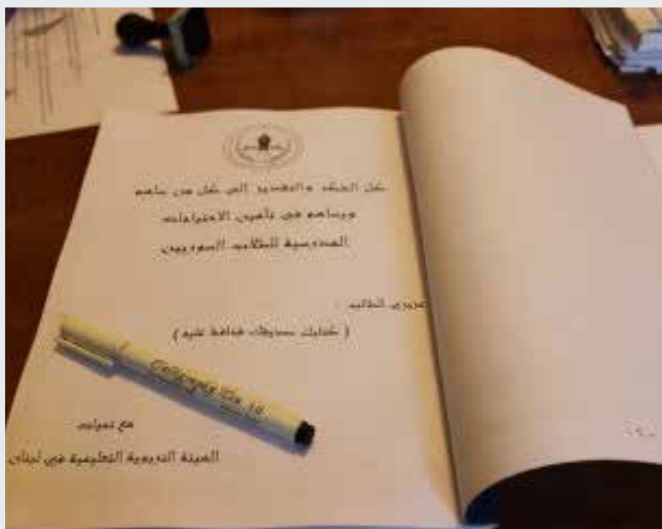 كل الشكر والتقدير الى كل من ساهم
ويساهم في تأمين الاحتياجات
المدرسية للطلاب السوريين
عزيزي الطالب :
( كتابك صديقك فحافظ عليه )
مع تحيات
الهيئة التربوية التعليمية في لبنان